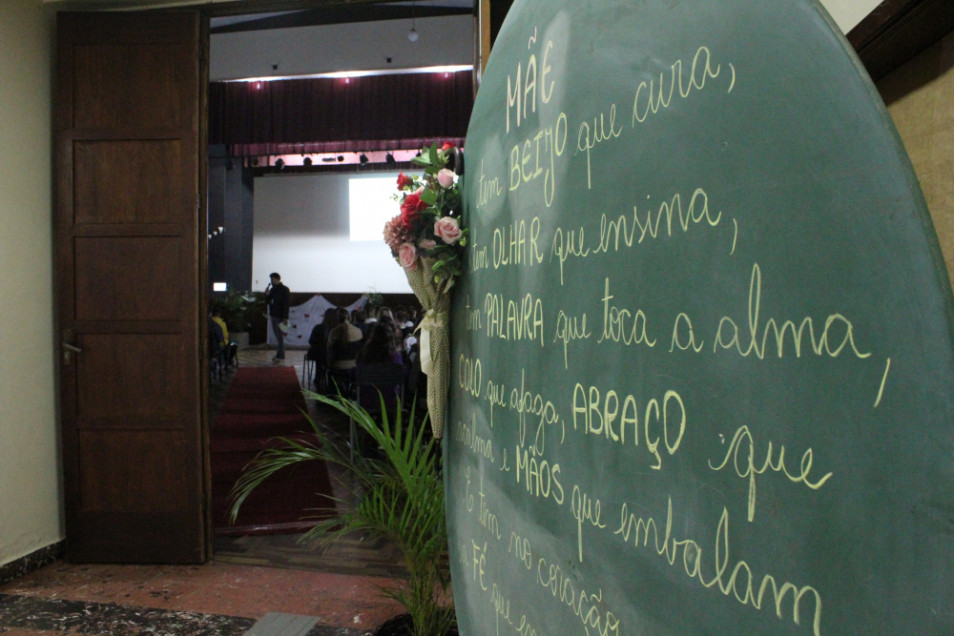 MÃE
tem BEIJO que cura,
tem OLHAR que ensina,
tem PALAVRA que toca a alma,
COLO que afaga, ABRAÇO que
acalma e MÃOS que embalam
tem no coração
FÉ que